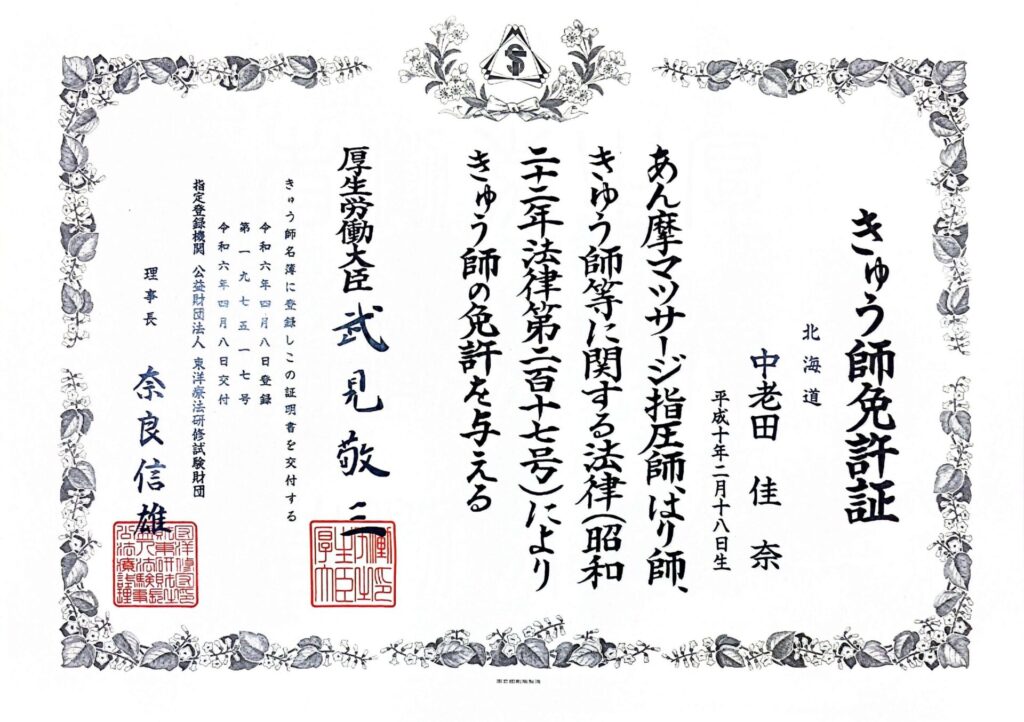 きゅう師免許証
北海道
中老田 佳奈
平成十年二月十八日生
あん摩マツサージ指圧師、はり師、
きゆう師等に関する法律(昭和
二十二年法律第二百十七号)により
きゅう師の免許を与える
厚生労働大臣 武見敬三
きゅう師名簿に登録しこの証明書を交付する
令和六年四月八日登録
第一九七五一七号
令和六年四月八日交付
指定登録機関 公益財団法人 東洋療法研修試験財団
理事長 奈良信雄